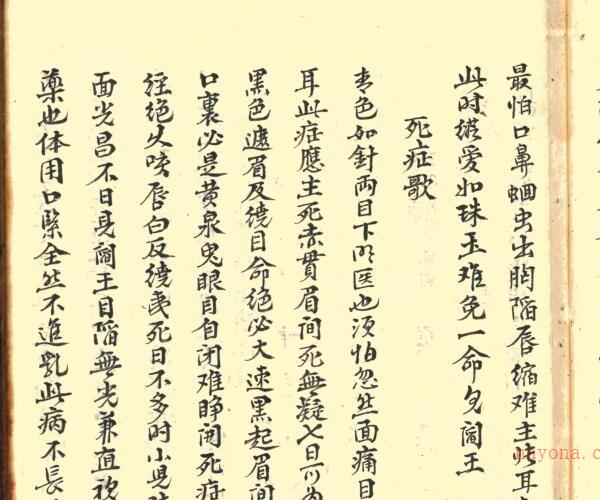 最怕口鼻蛔虫出胸陷唇缩难主此耳
此时縱爱如珠玉难免一命見阎王
死症歌
青色如針両目下明医也须怕忽然面痛目
耳此症應主死赤贯眉间死無疑七日可
黑色遮眉及绕目命绝必大速黑起眉间
口裏必是黄泉鬼眼目自闭难睁闭死症
经绝久咳唇白反繞夷死日不多时小児
面光昌不日見阎王目陷無光兼直視
藥也体用口緊全然不進乳此病不長
nayona.c